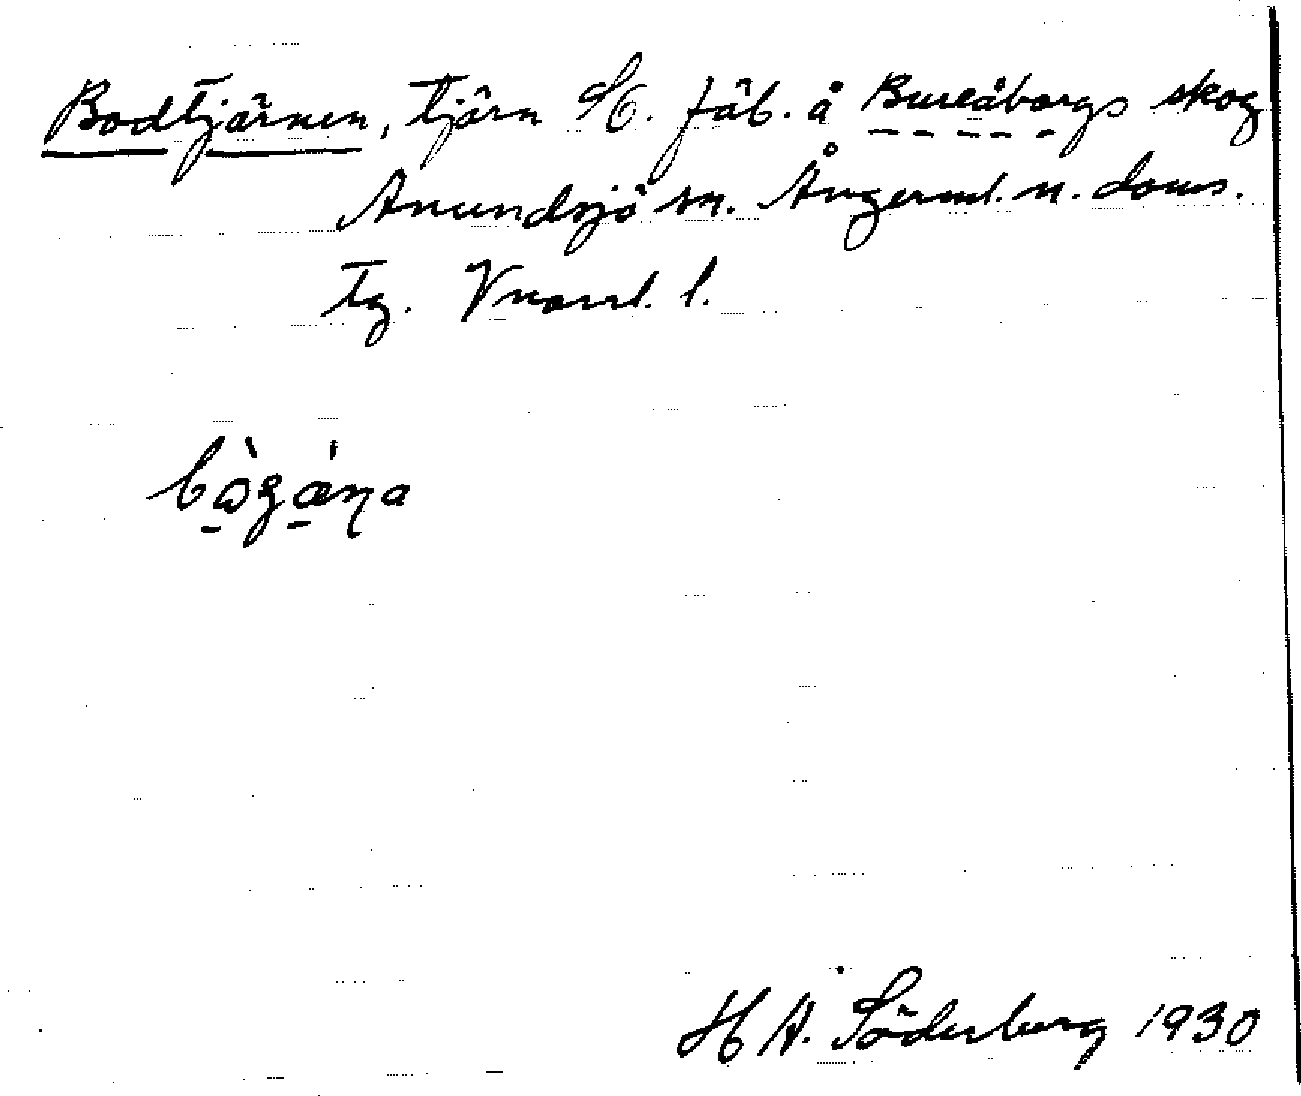 Bodtjärnen, tjärn St. fäb. å Bureåborgs skog
Anundsjö sn. Ångerml. n. doms.
tg. Vnorrl. l.
H A. Söderberg 1930